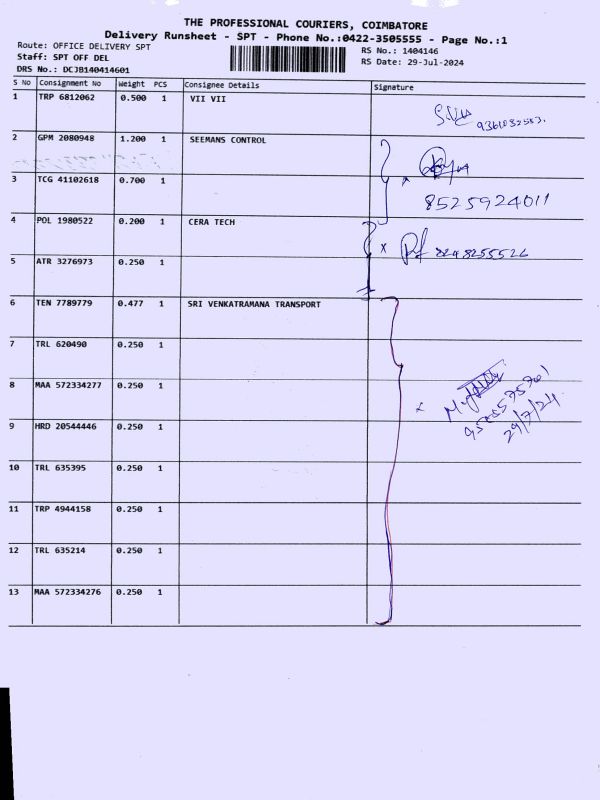 THE PROFESSIONAL COURIERS, COIMBATORE
Delivery Runsheet - SPT - Phone No.:0422-3505555 - Page No.:1
Route: OFFICE DELIVERY SPT
RS No.: 1404146
Staff: SPT OFF DEL
RS Date: 29-Jul-2024
DRS No.: DCJB140414601
S No Consignment No Weight PCS Consignee Details Signature
1 TRP 6812062 0.500 1 VII VII
2 GPM 2080948 1.200 1 SEEMANS CONTROL
3 TCG 41102618 0.700 1
8525924011
4 POL 1980522 0.200 1 CERA TECH
x
5 ATR 3276973 0.250 1
6 TEN 7789779 0.477 1 SRI VENKATRAMANA TRANSPORT
7 TRL 620490 0.250 1
8 MAA 572334277 0.250 1
x
29/7/24
9 HRD 20544446 0.250 1
10 TRL 635395 0.250 1
11 TRP 4944158 0.250 1
12 TRL 635214 0.250 1
13 MAA 572334276 0.250 1